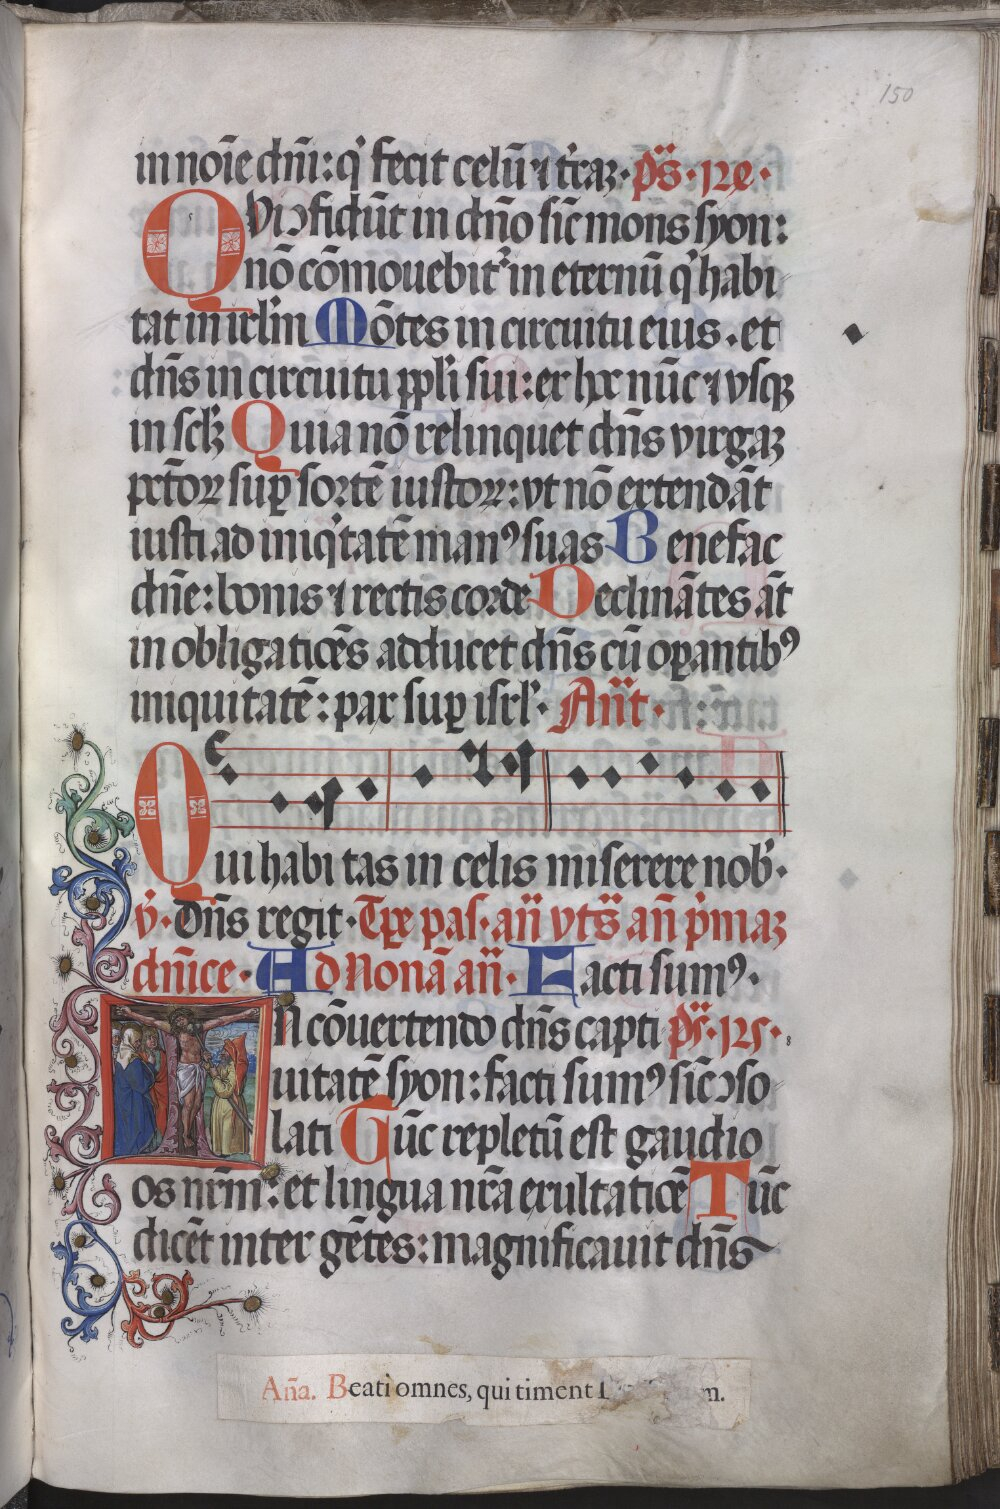 150
in noīe dn̄i: qͥ fecit celū ⁊ tr̄aꝫ · ps̄ · 124 ·
QVi ↄfidūt in dn̄o sic̄ mons syon:
nō cōmouebitᷣ in eternū qͥ habi
tat in irl̄m Mōtes in circuitu eius . et
dn̄s in circuitu ppl̓i sui: ex hoc nūc ⁊ vsqꝫ
in sclꝫ Quia nō relinquet dn̄s virgaꝫ
pctōꝝ suꝑ sortē iustoꝝ: vt nō extendāt
iusti ad iniqͥtatē manꝰ suas Benefac
dn̄e: bonis ⁊ rectis corde Declinātes āt
in obligatiōēs adducet dn̄s cū oꝑantibꝰ
iniquitatē: pax suꝑ isrl̓ · Ant̄ ·
Qui habitas in celis miserere nob̓ ·
v̓ · Dn̄s regit · Tꝑe pas · an̄ vts̄ an̄ pͥmaꝫ
dn̄ice · Ad Nonā an̄ · Facti sumꝰ ·
IN cōuertendo dn̄s capti ps̄ · 125 ·
uitatē syon: facti sumꝰ sic̄ ↄso
lati Tūc repletū est gaudio
os nrm̄: et lingua nr̄a exultatiōē Tūc
dicēt inter gētes: magnificauit dn̄s
Aña. Beati omnes, qui timent